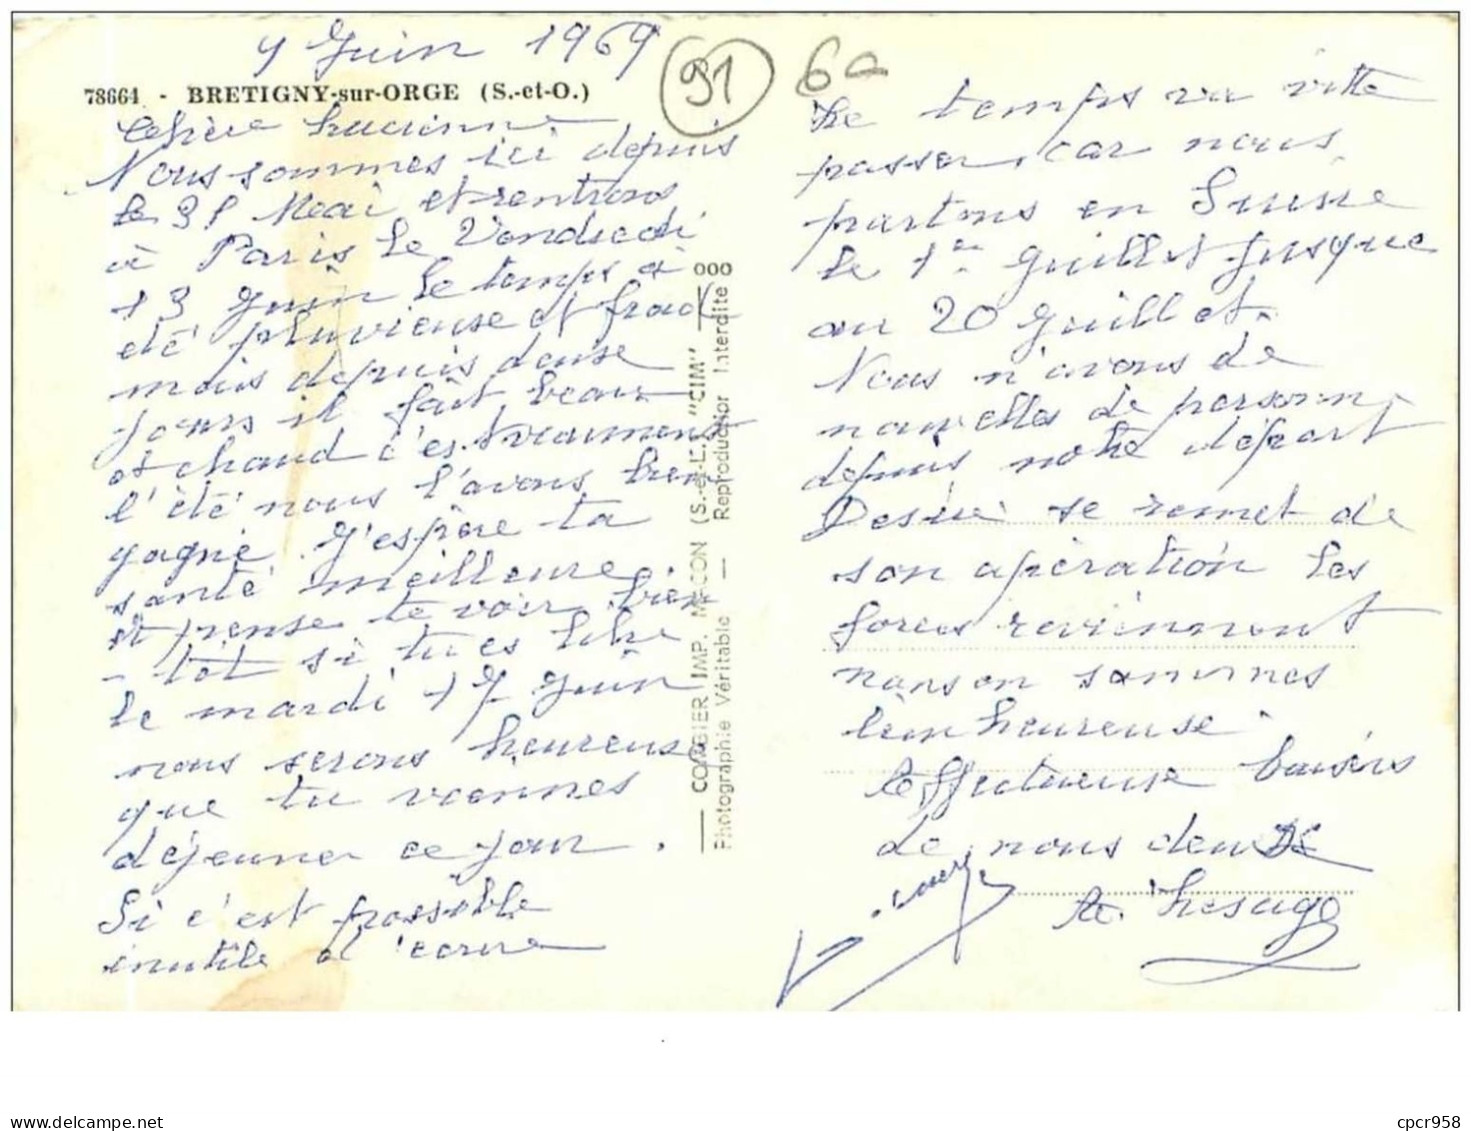 9 Juin 1969
91
6a
78664 - BRETIGNY-sur-ORGE (S.-et-O.)
Chère Lucienne
Nous sommes ici depuis
le 31 Mai et rentrons
à Paris le Vendredi
13 Juin le temps à
été pluvieuse et froid
mais depuis deuse
jours il fait beau
et chaud c'est vraiment
l'été nous l'avons bien
gagné. J'espère ta
santé meilleure.
et pense te voir bien
- tôt si tu es libre
le mardi 17 Juin
nous serons heureuse
que tu viennes
déjeuner ce jour.
Si c'est possible
inutile d'écrire
COMBIER IMP. MACON (S.-et-L.) "CIM"
Photographie Véritable — Reproduction Interdite
Le temps va vitte
passer, car nous
partons en Suisse
le 1er Juillet jusque
au 20 Juillet.
Nous n'avons de
nouvelles de personne
depuis notre départ
Desiré se remet de
son opération les
forces reviennent
nous en sommes
bien heureuse.
Affectueuse baisers
de nous deux
Lesage
cpcr958